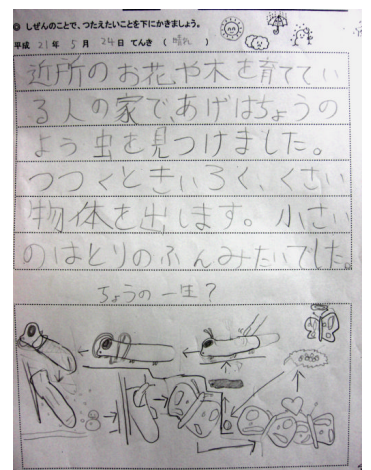 しぜんのことで、つたえたいことを下にかきましょう。
平成 21 年 5 月 24 日 てんき ( 晴れ )
近所のお花や木を育ててい
る人の家で、あげはちょうの
よう虫を見つけました。
つつくときいろく、くさい
物体を出します。小さい
のはとりのふんみたいでした。
ちょうの一生?